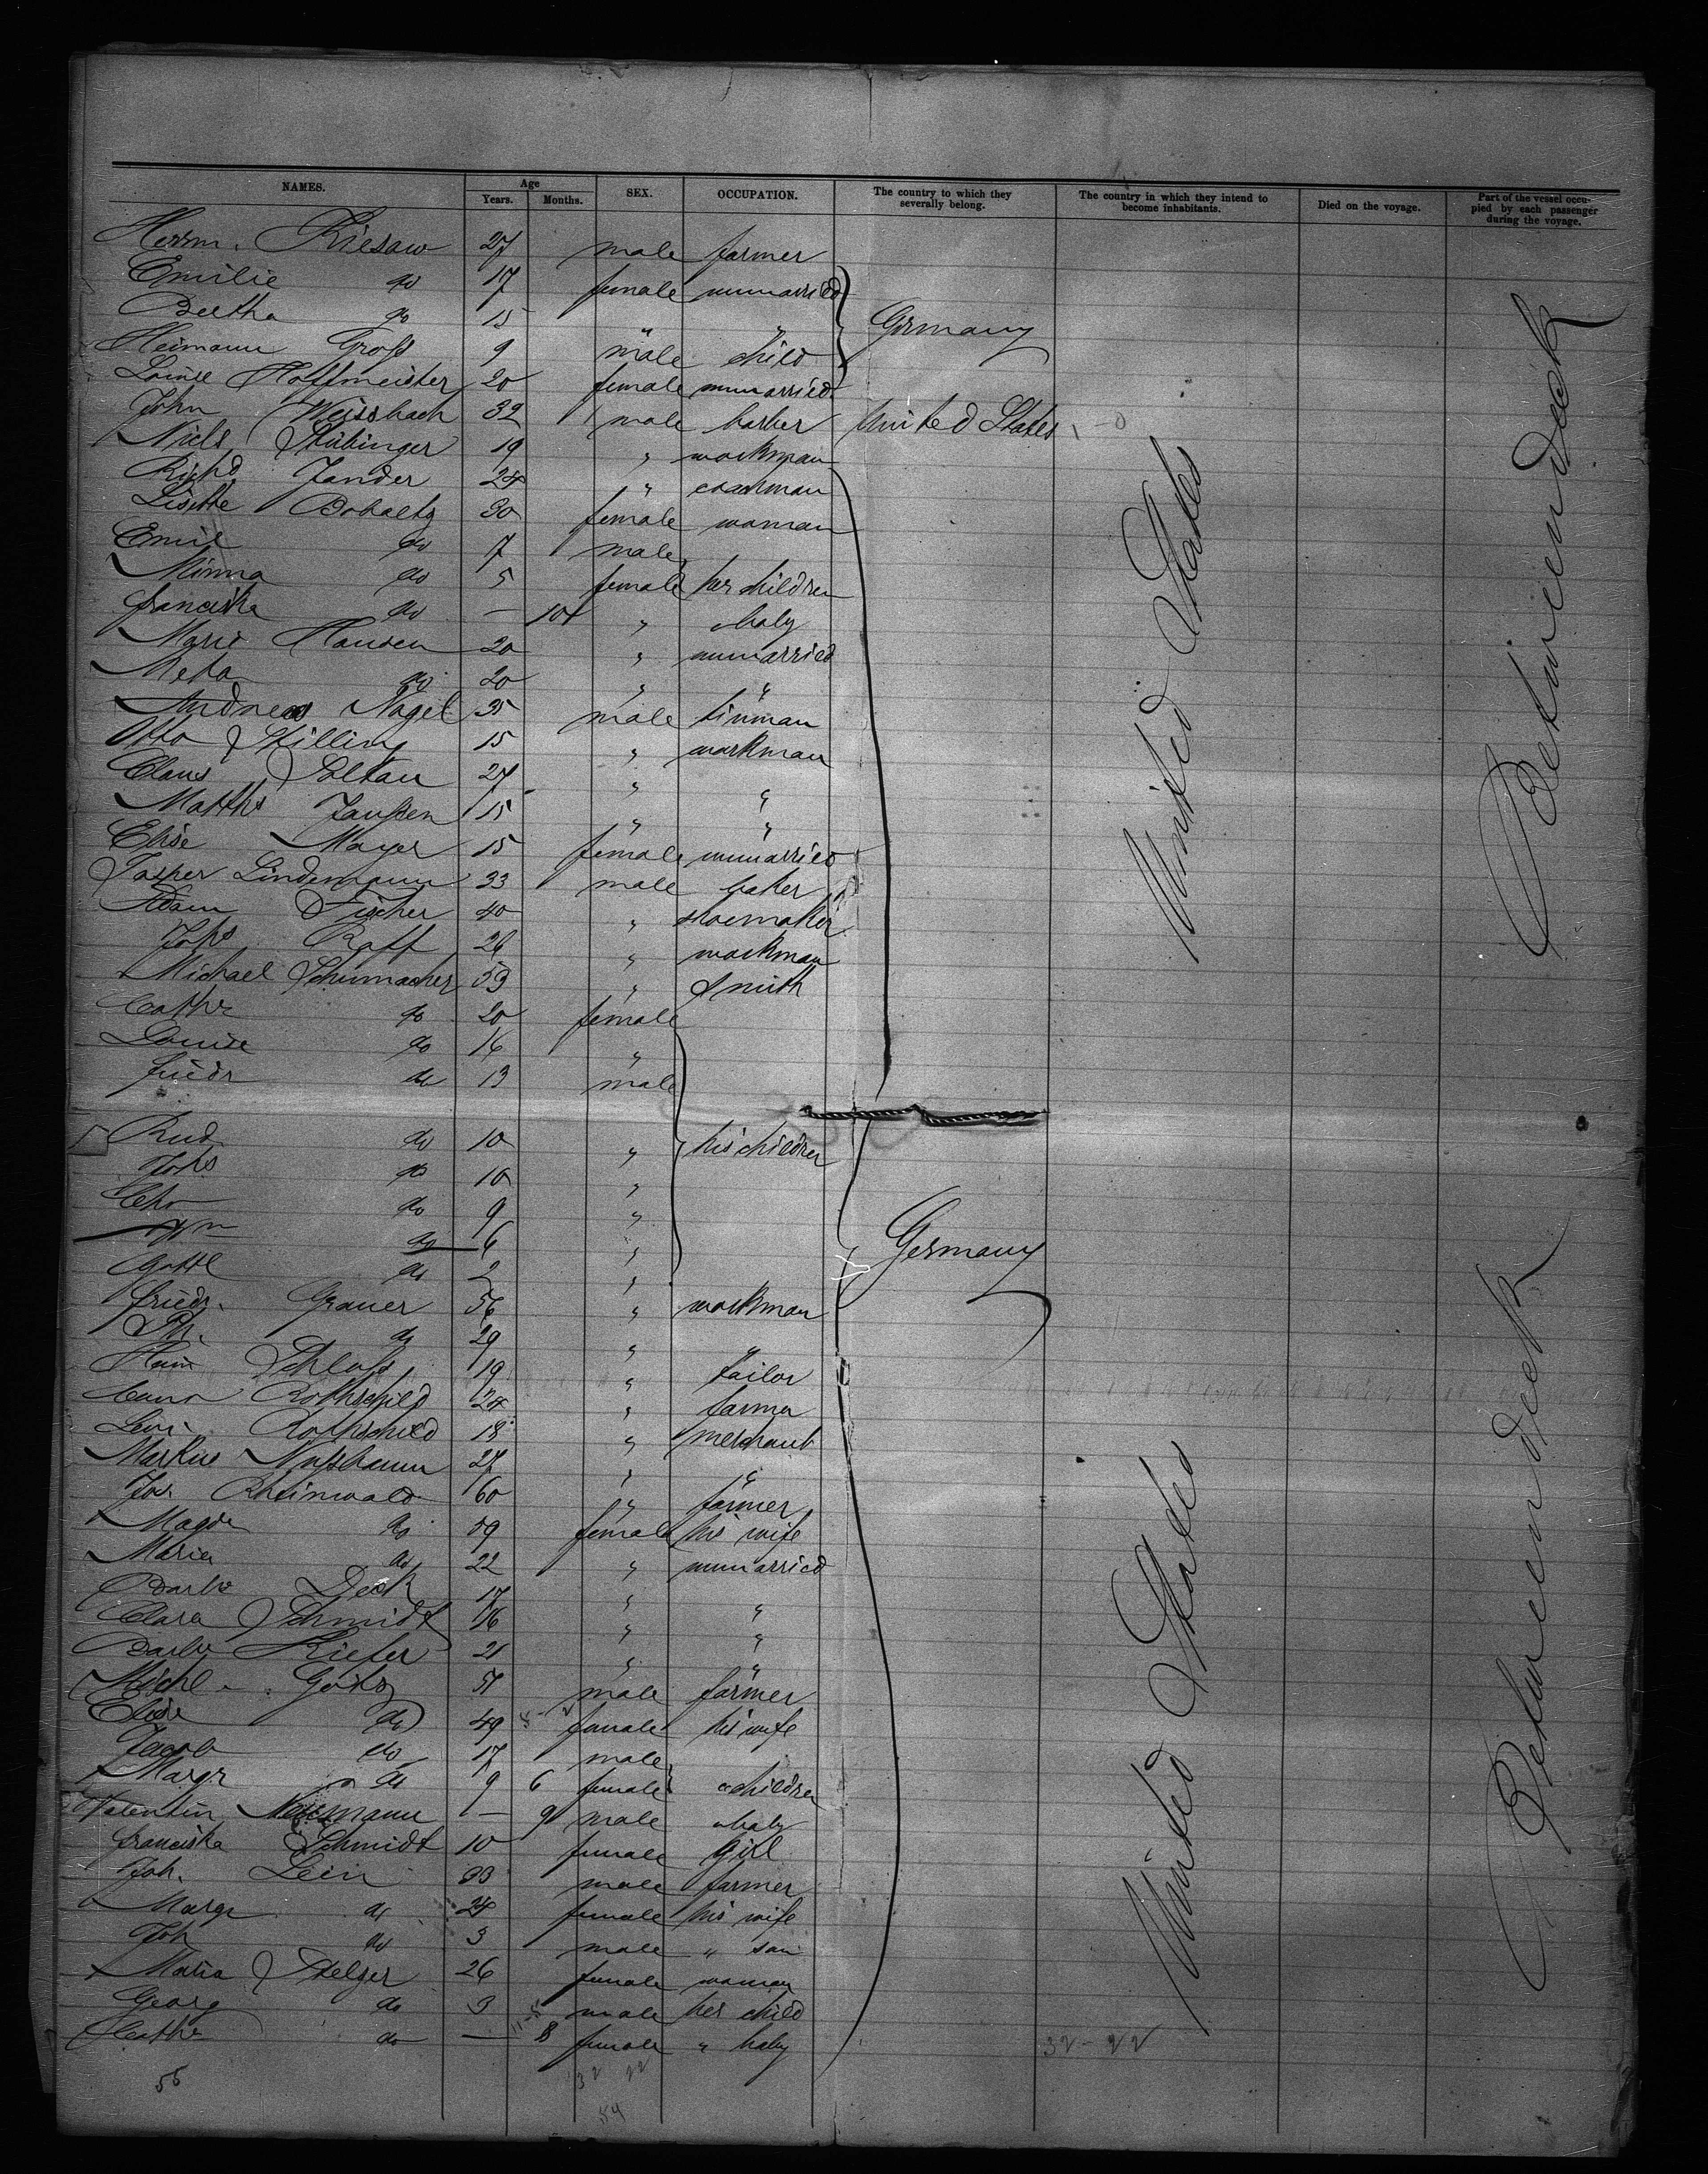 NAMES. Age Years. Months. SEX. OCCUPATION. The country to which they severally belong. The country in which they intend to become inhabitants. Died on the voyage. Part of the vessel occupied by each passenger during the voyage.
Herrm. Kiesow 27 male farmer
Emilie do 17 female unmarried
Bertha do 15 " "
Heimann Groß 9 male child
Germany
Louise Hoffmeister 20 female unmarried
John Weissbach 32 male barber United States
Niels 19 " workman
Richd Jander 24 " coachman
Lisette 30 female woman
Emil do 7 male
Minna do 5 female her children
Franciska do — 10 " baby
Marie Hansen 20 " unmarried
Meta do 20 " "
Andreas Nagel 35 male tinman
Otto Schilling 15 " workman
Claus Soltau 27 " "
Matths Janßen 15 " "
Elise Mayer 15 female unmarried
Jasper Lindemann 33 male baker
Adam Fischer 40 " shoemaker
Johs Raff 26 " workman
Michael Schumacher 59 " Smith
Cathe do 20 female
Louise do 16 "
Friedr do 13 male
Rud do 10 " his children
Johs do 10 "
Chr do 9 "
Wm do 6 "
Gottl do 2 "
Germany
Friedr. Grauer 56 " workman
Ph. do 29 " "
Heim Schloß 19 " tailor
Rothschild 24 " farmer
Levi Rothschild 18 " merchant
Markus Nußbaum 27 " "
Jos. Rheinwald 60 " farmer
Magde do 59 female his wife
Maria do 22 " unmarried
Barbe Deck 17 " "
Clara Schmidt 16 " "
Barbe Kiefer 21 " "
Michl. Götz 51 male farmer
Elise do 49 female his wife
Jacob do 17 male
Margr do 9 6 female children
Valentin Neumann — 9 male baby
Franciska Schmidt 10 female girl
Joh. Lein 33 male farmer
Margr do 24 female his wife
Joh do 3 male " son
Maria Stelzer 26 female woman
Georg do 3 male her child
Cathe do — 8 female " baby
United States
Between deck
United States
Between deck
32-22
56
32 22
54